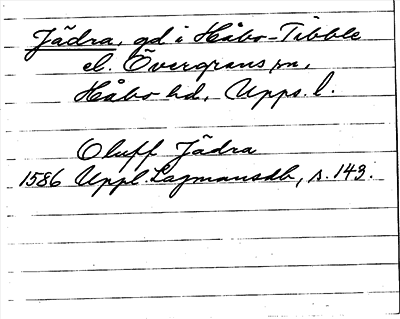 Jädra, gd i Håbo-Tibble
el. Övergrans sn,
Håbo hd, Upps. l.
Oluff Jädra
1586 Uppl. Lagmansdb, s. 143.